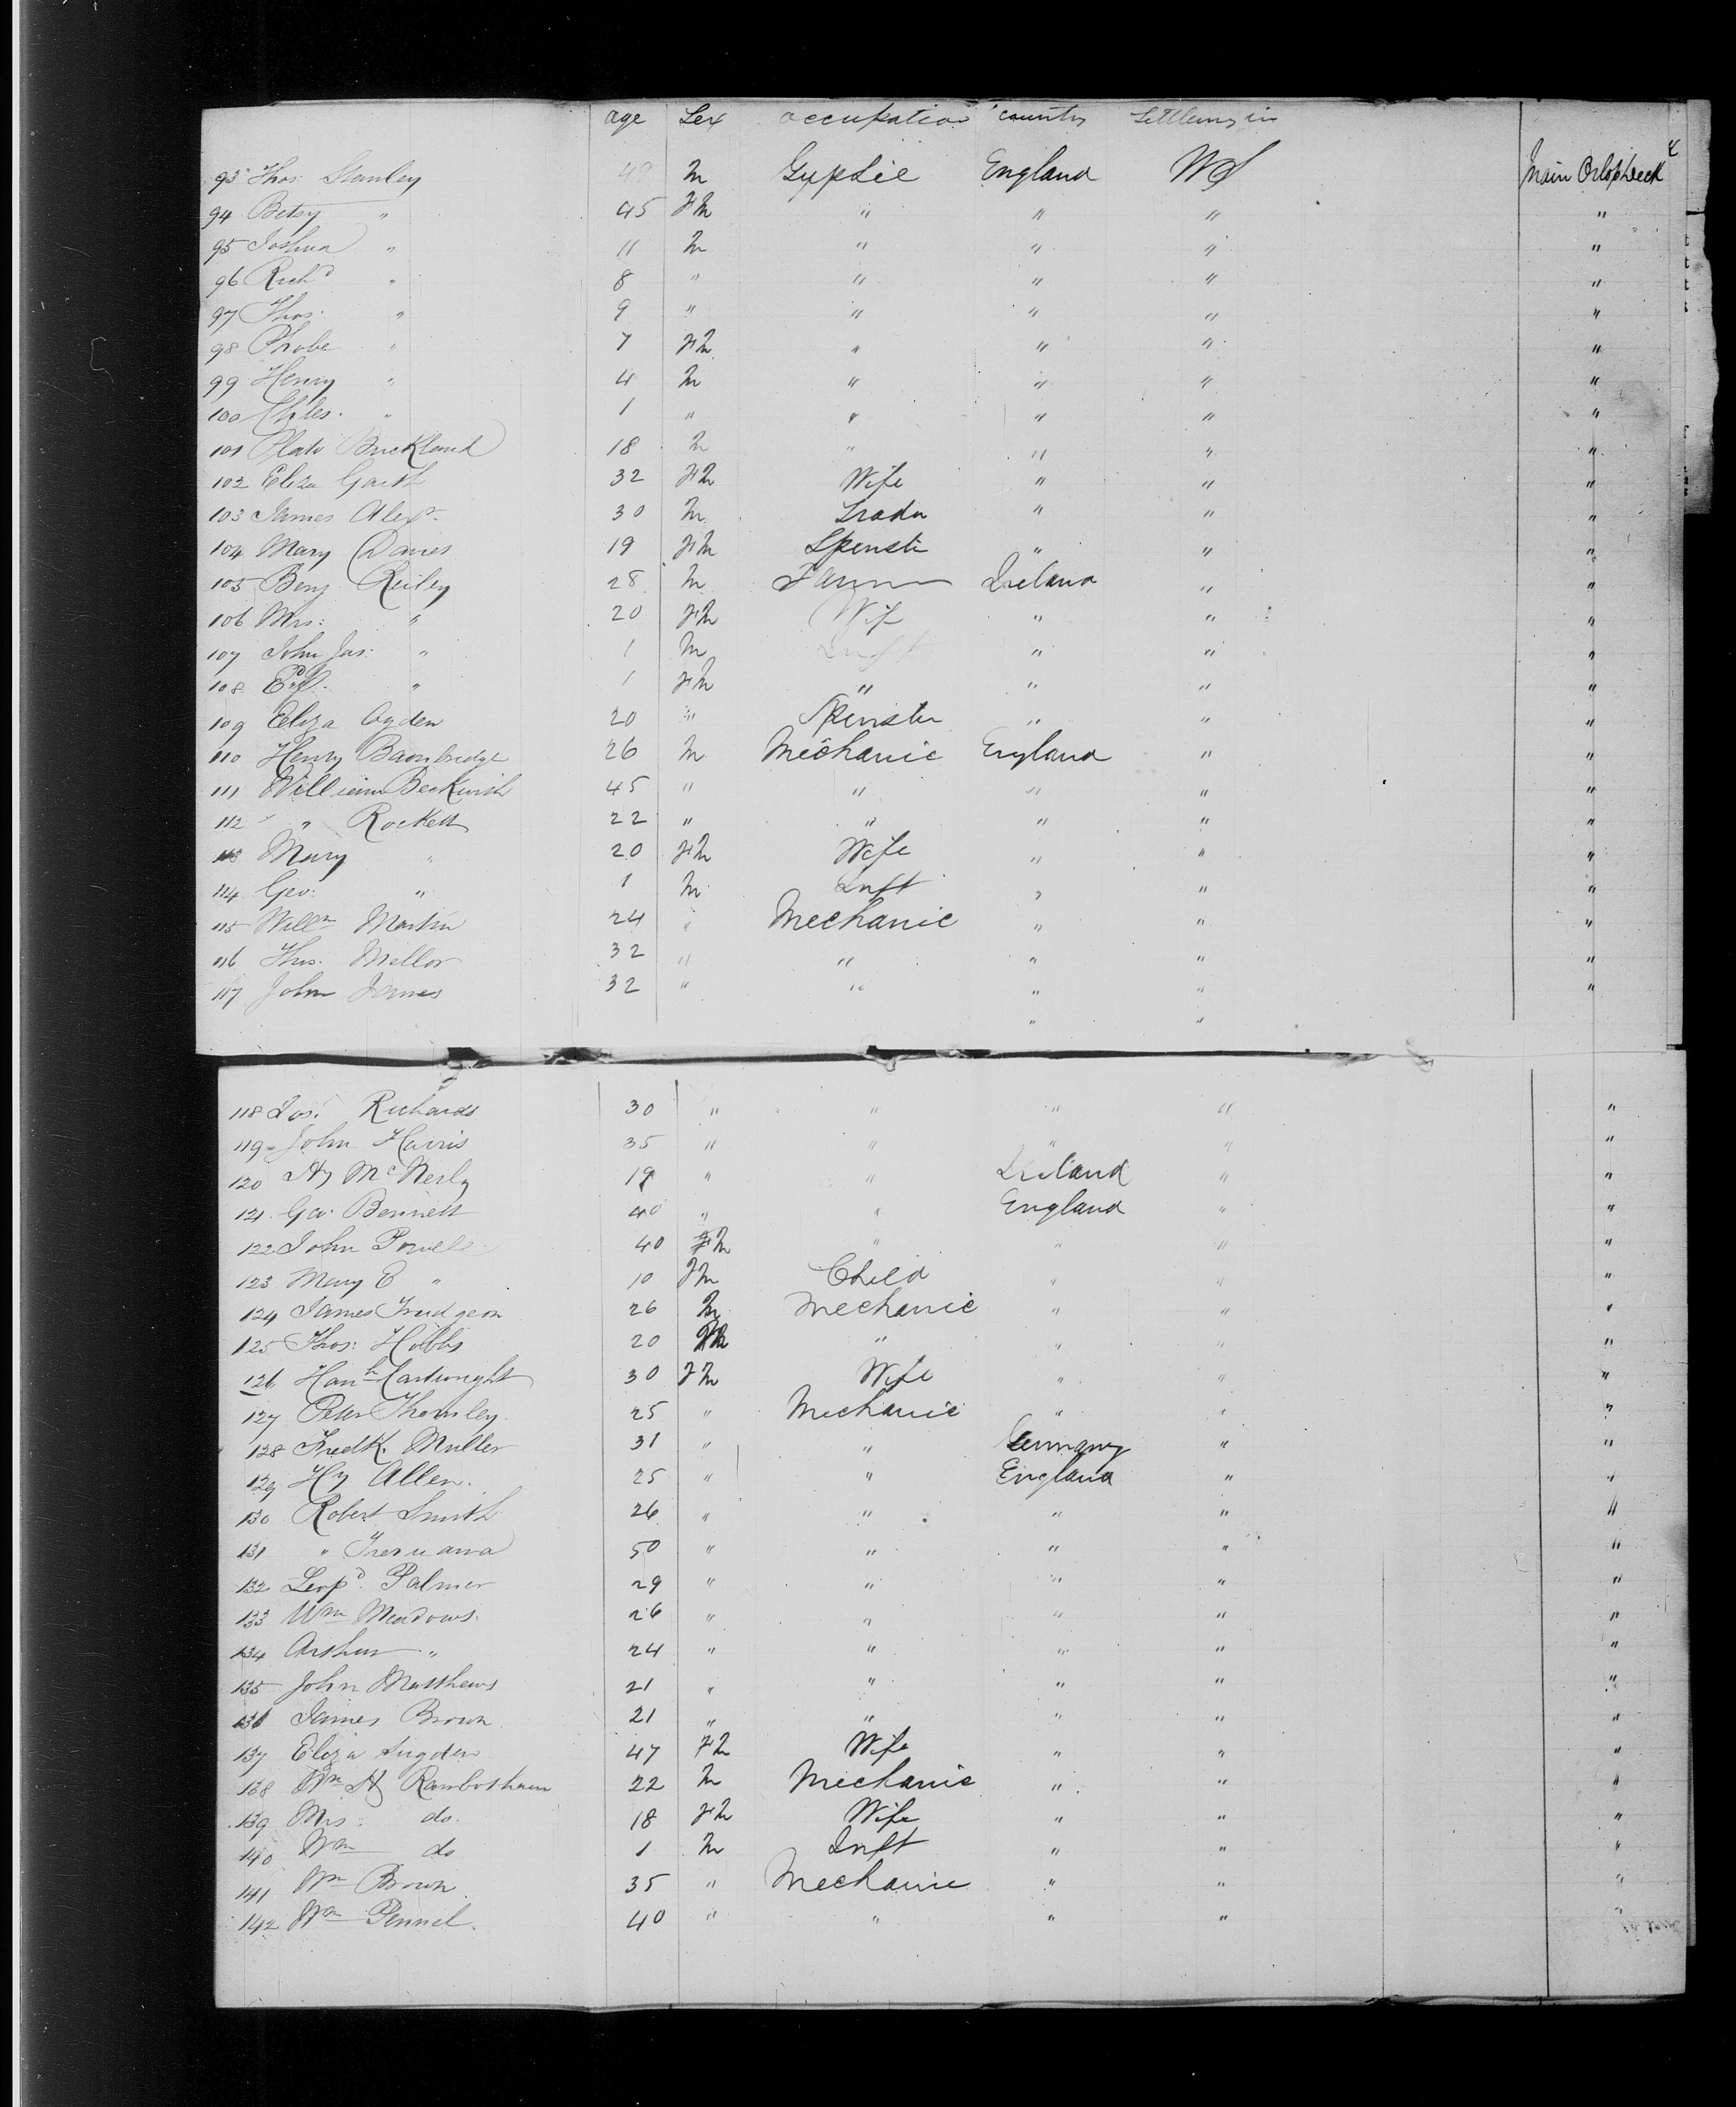 age Sex occupation country Settlemg in
4
93 Thos: Stanley 49 M Gypsie England US Main Orlop Deck
94 Betsy " 45 Fm " " " "
95 Joshua " 11 M " " " "
96 Richd " 8 " " " " "
97 Thos: " 9 " " " " "
98 Phobe " 7 Fm " " " "
99 Henry " 4 M " " " "
100 Chles. " 1 " " " " "
101 Plato Buckland 18 M " " " "
102 Eliza Garth 32 Fm Wife " " "
103 James Alexr. 30 M Trader " " "
104 Mary Davies 19 Fm Spenster " " "
105 Benj Reiley 28 M Farmer Ireland " "
106 Mrs: " 20 Fm Wife " " "
107 John Jas: " 1 M Inft " " "
108 " 1 Fm " " " "
109 Eliza Ogden 20 " Spenster " " "
110 Henry Bambridge 26 M Mechanic England " "
111 William Beckwith 45 " " " " "
112 " Rockett 22 " " " " "
113 Mary " 20 Fm Wife " " "
114 Geo: " 1 M Inft " " "
115 Willm Martin 24 " Mechanic " " "
116 Thos. Mellor 32 " " " " "
117 John James 32 " " " " "
" "
118 Jos. Richards 30 " " " " "
119 John Harris 35 " " " " "
120 Hy McNerly 19 " " Ireland " "
121 Geo. Bennett 40 " " England " "
122 John Powell 40 M " " " "
123 Mary E " 10 Fm Child " " "
124 James Trudgeon 26 M Mechanic " " "
125 Thos: Hobbs 20 M " " " "
126 Hanh Cartwright 30 Fm Wife " " "
127 Peter Thornley 25 " Mechanic " " "
128 Fredk. Muller 31 " " Germany " "
129 Hy Allen. 25 " " England " "
130 Robert Smith 26 " " " " "
131 " 50 " " " " "
132 Leopd. Palmer 29 " " " " "
133 Wm Meadows. 26 " " " " "
134 Arthur " 24 " " " " "
135 John Matthews 21 " " " " "
136 James Brown 21 " " " " "
137 Eliza Sugden 47 Fm Wife " " "
138 Wm H Rambotham 22 M Mechanic " " "
139 Mrs: do. 18 Fm Wife " " "
140 Wm do 1 M Inft " " "
141 Wm Brown 35 " Mechanic " " "
142 Wm Pennel. 40 " " " " "